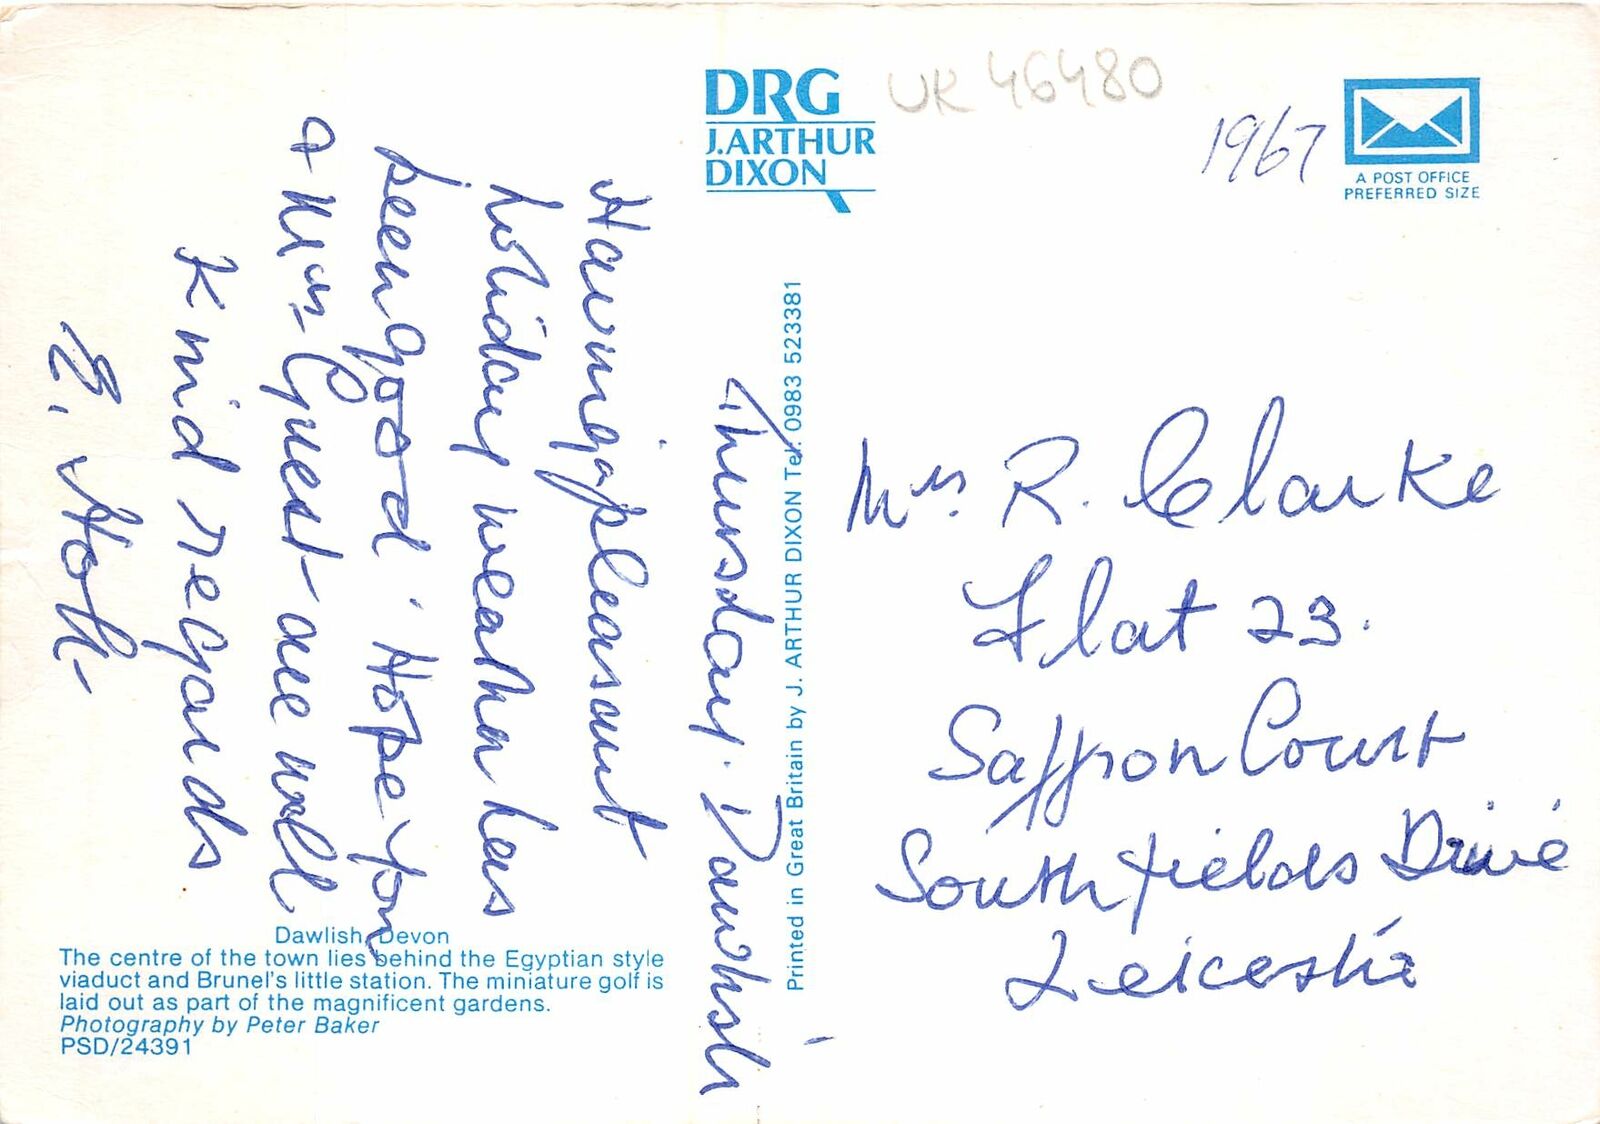 DRG
J. ARTHUR
DIXON
UK 46480
1967
A POST OFFICE
PREFERRED SIZE
Thursday. Dawlish
Having a pleasant
holiday weather has
been good. Hope you
& Mrs Guest are well
Kind regards
E. Holt
Printed in Great Britain by J. ARTHUR DIXON Tel: 0983 523381
Mrs. R. Clarke
Flat 23.
Saffron Court
Southfields Drive
Leicester
Dawlish, Devon
The centre of the town lies behind the Egyptian style
viaduct and Brunel's little station. The miniature golf is
laid out as part of the magnificent gardens.
Photography by Peter Baker
PSD/24391